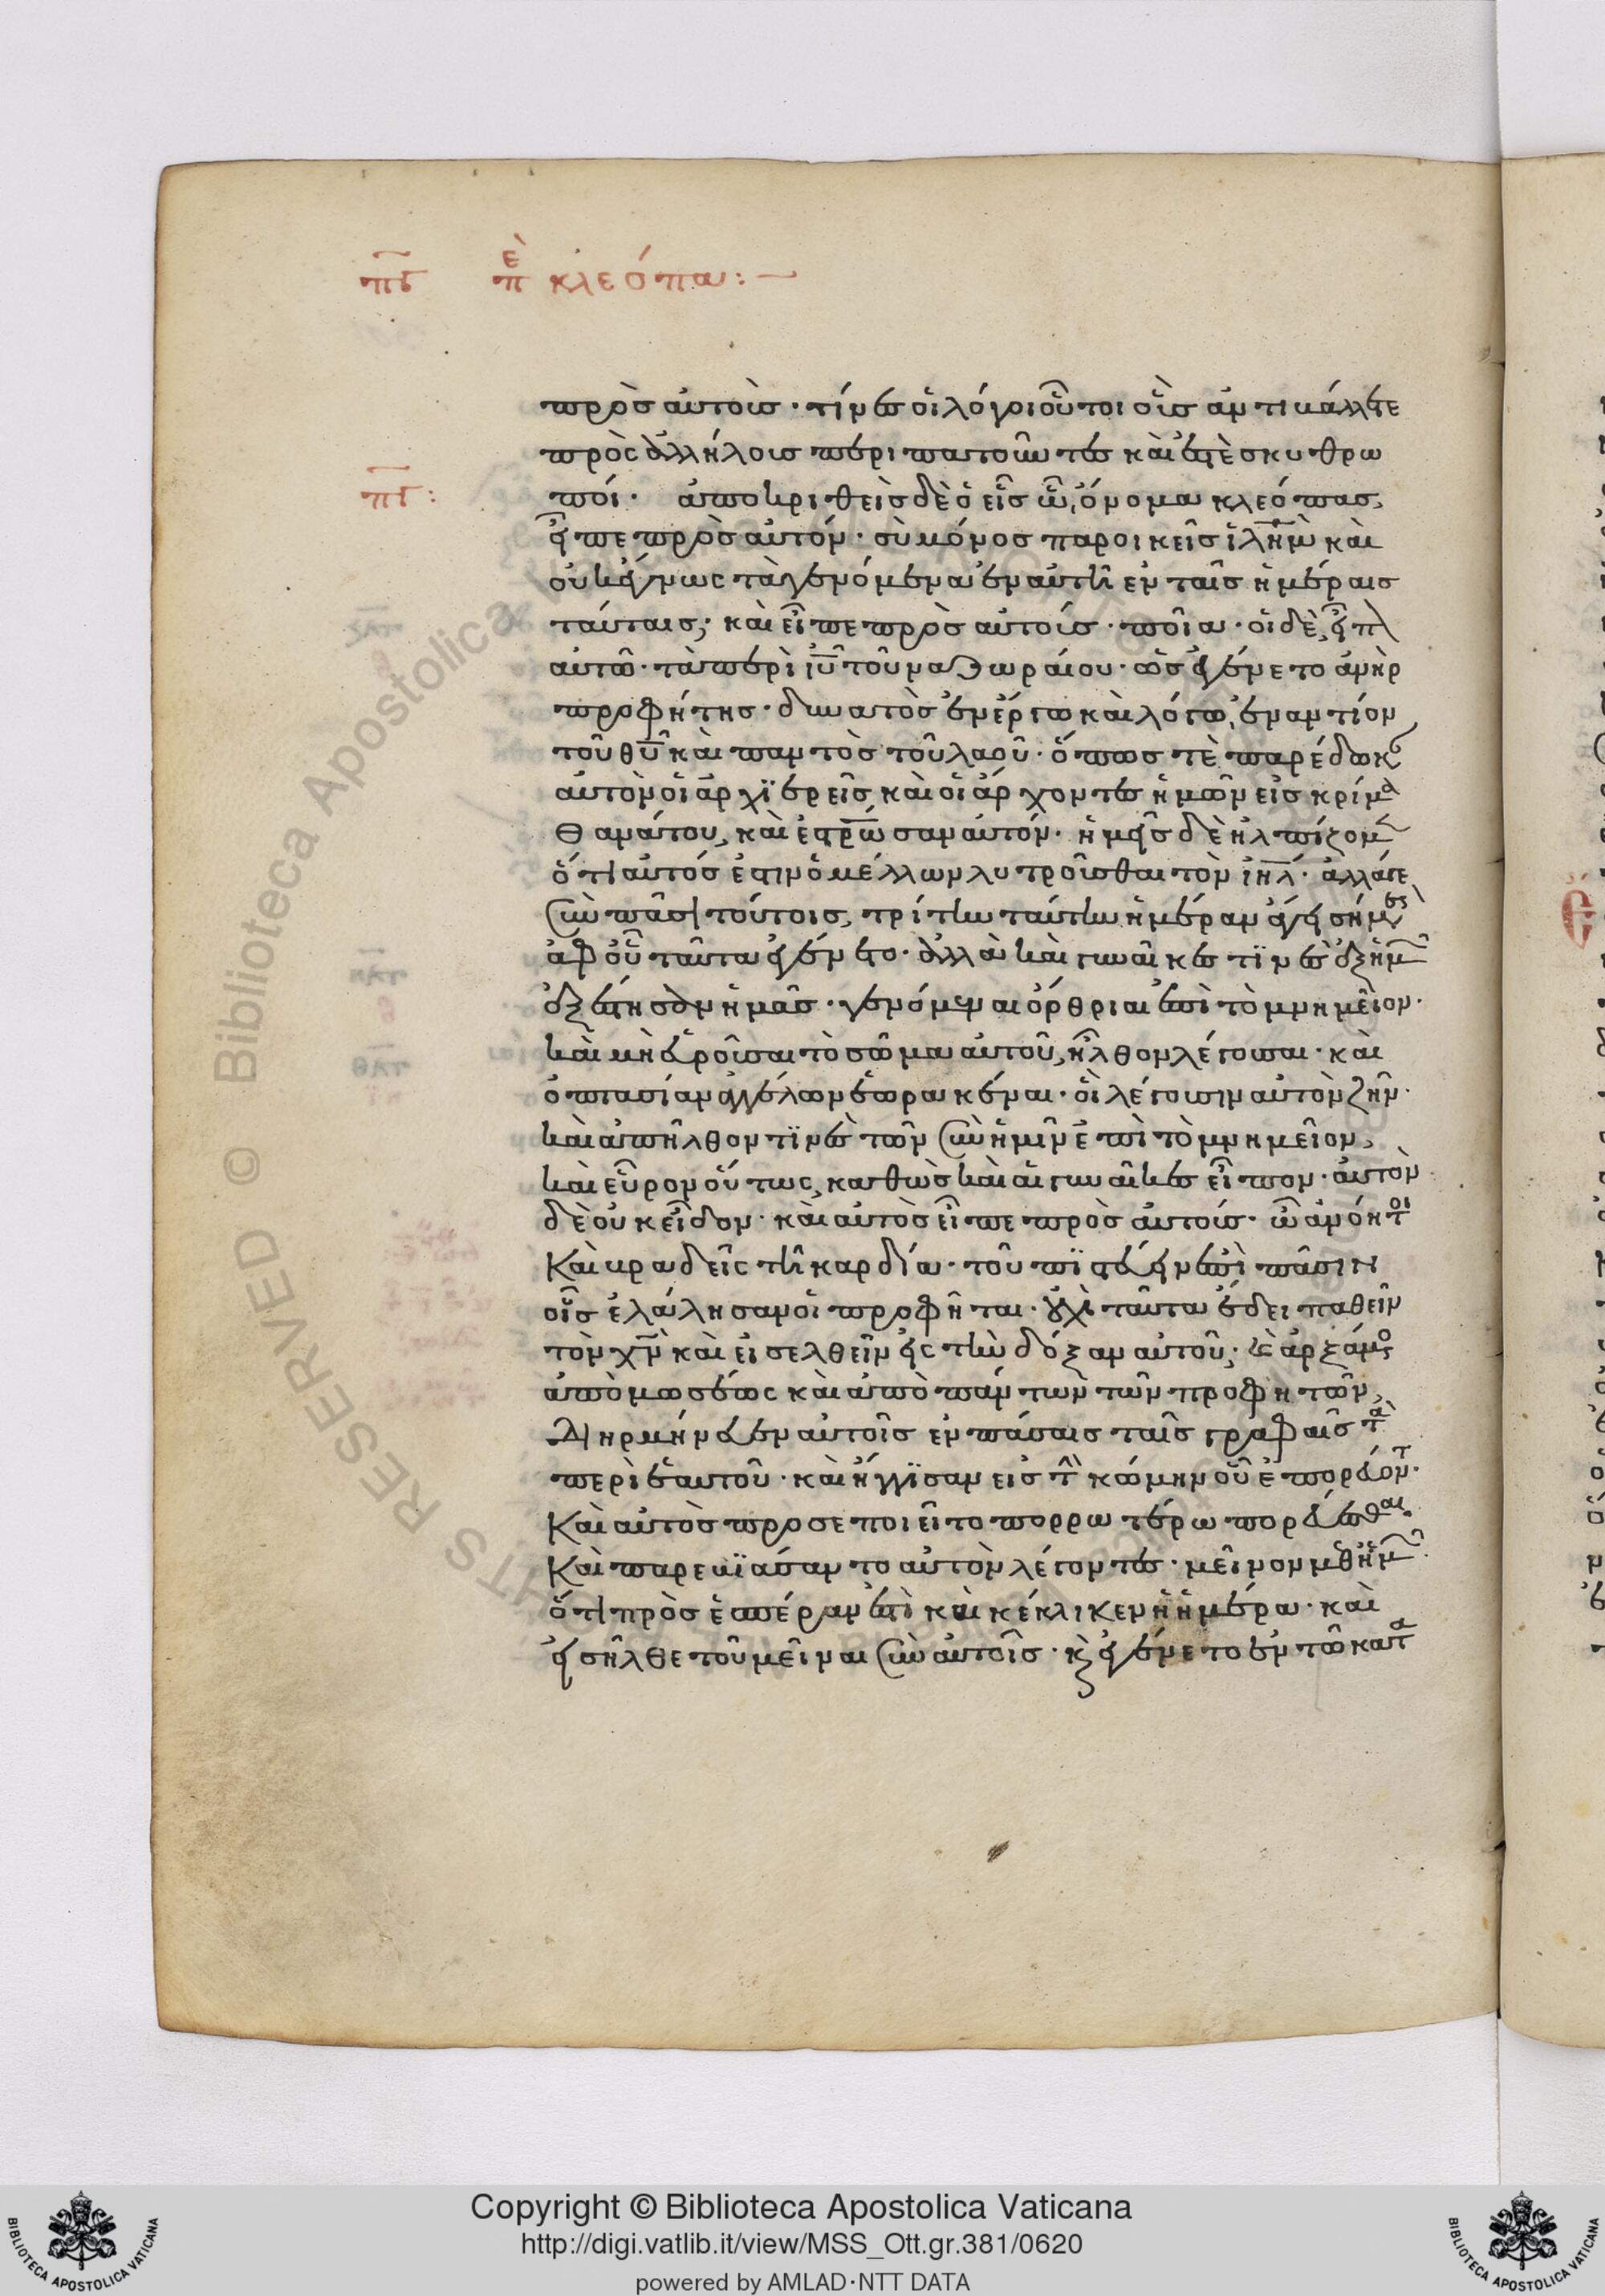 πβ πε κλεόπα:
πρὸς αὐτούς· τίνες οἱ λόγοι οὗτοι οὓς ἀντιβάλλετε
πρὸς ἀλλήλους περιπατοῦντες καὶ ἐστὲ σκυθρω
πβ:
ποί· ἀποκριθεὶς δὲ ὁ εἷς ὧ ὄνομα κλεόπας,
εἶπε πρὸς αὐτόν· σὺ μόνος παροικεῖς ἰλημ καὶ
οὐκ ἔγνως τὰ γενόμενα ἐν αὐτῆ ἐν ταῖς ἡμέραις
ταύταις; καὶ εἶπε πρὸς αὐτούς· ποῖα· οἱ δὲ, εἶπ
αὐτῶ· τὰ περὶ ιυ τοῦ ναζωραίου· ὃς ἐγένετο ἀνὴρ
προφήτης· δυνατὸς ἐν ἔργω καὶ λόγω, ἐναντίον
τοῦ θυ καὶ παντὸς τοῦ λαοῦ· ὅπως τὲ παρέδωκ
αὐτὸν οἱ ἀρχϊερεῖς καὶ οἱ ἄρχοντες ἡμῶν εἰς κρίμα
θανάτου, καὶ ἐστρωσαν αὐτόν· ἡμεῖς δὲ ἠλπίζομ
ὅτι αὐτός ἐστιν ὁ μέλλων λυτροῦσθαι τὸν ιηλ· ἀλλάγε
σὺν πᾶσι τούτοις, τρίτην ταύτην ἡμέραν ἄγει σήμερ
ἀφ οὗ ταῦτα ἐγένετο· ἀλλὰ καὶ γυναῖκες τϊνὲς ἐξ ἡμ
ἐξέστησαν ἡμᾶς· γενόμεναι ὄρθριαι ἐπὶ τὸ μνημεῖον·
καὶ μὴ εὑροῦσαι τὸ σῶμα αὐτοῦ, ἦλθον λέγουσαι· καὶ
ὀπτασίαν ἀγγέλων ἑωρακέναι· οἳ λέγουσιν αὐτὸν ζῆν·
καὶ ἀπῆλθον τϊνὲς τῶν σὺν ἡμῖν ἐπὶ τὸ μνημεῖον,
καὶ εὗρον οὕτως, καθὼς καὶ αἱ γυναῖκες εἶπον· αὐτὸν
δὲ οὐκ εἶδον· καὶ αὐτὸς εἶπε πρὸς αὐτούς· ὦ ἀνόητοι
καὶ βραδεῖς τῆ καρδία· τοῦ πϊστεύειν ἐπὶ πᾶσιν
οἷς ἐλάλησαν οἱ προφῆται· οὐχὶ ταῦτα ἔδει παθεῖν
τὸν χν καὶ εἰσελθεῖν εἰς τὴν δόξαν αὐτοῦ; καὶ ἀρξάμενος
ἀπὸ μωσέως καὶ ἀπὸ πάντων τῶν προφητῶν,
διηρμήνευεν αὐτοῖς ἐν πάσαις ταῖς γραφαῖς τὰ
περὶ ἑαυτοῦ· καὶ ἤγγϊσαν εἰς τὴν κώμην οὗ ἐπορεύοντ·
καὶ αὐτὸς προσεποιεῖτο πορρωτέρω πορεύεσθαι·
καὶ παρεβϊάσαντο αὐτὸν λέγοντες· μεῖνον μεθ ἡμ·
ὅτι πρὸς ἑσπέραν ἐστὶ καὶ κέκλικεν ἡ ἡμέρα· καὶ
εἰσῆλθε τοῦ μεῖναι σὺν αὐτοῖς· κ ἐγένετο ἐν τῶ κατα
Copyright © Biblioteca Apostolica Vaticana
http://digi.vatlib.it/view/MSS_Ott.gr.381/0620
powered by AMLAD·NTT DATA